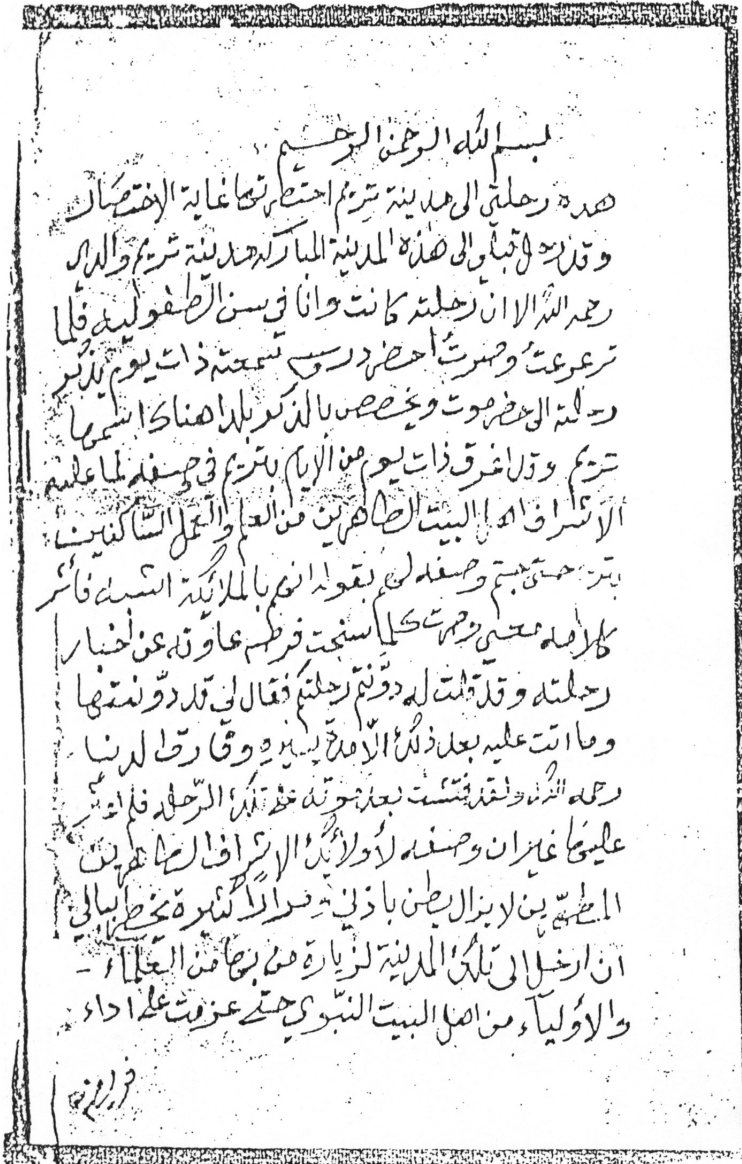 بسم الله الرحمن الرحيم
هذه رحلتي الى مدينة تريم اختصرتها غاية الاختصار
وقد رحل قبلي الى هذه المدينة المباركة مدينة تريم والدي
رحمه الله الا ان رحلته كانت وانا في سن الطفوليه فلما
ترعرعت وصرت احضر دروسه سمعته ذات يوم يذكر
رحلته الى حضرموت ويخصص بالذكر بلدا هناك اسمها
تريم وقد اغرق ذات يوم من الايام بتريم في وصفه لما عليه
الاشراف اهل البيت الطاهرين من العلم والعمل الساكنين
حتى ختم وصفه لهم بقوله انهم بالملائكة اشبه فأثر
كلامه معي وصرت كلما سنحت فرصه عاودته عن أخبار
رحلته وقد قلت له دوّنتم رحلتكم فقال لي قد دوّنتها
وما اتت عليه بعد ذلك الّا مدة يسيره وفارق الدنيا
رحمه الله ولقد فتشت بعد موته على تلك الرّحله فلم اعثر
عليها غير ان وصفه لأولائك الاشراف الطاهرين
المطهّرين لا يزال يطن باذني ومرارًا كثيرة يخطر ببالي
ان ارحل الى تلك المدينة لزيارة من بها من العلماء -
والأولياء من اهل البيت النبّوي حتى عزمت على اداء